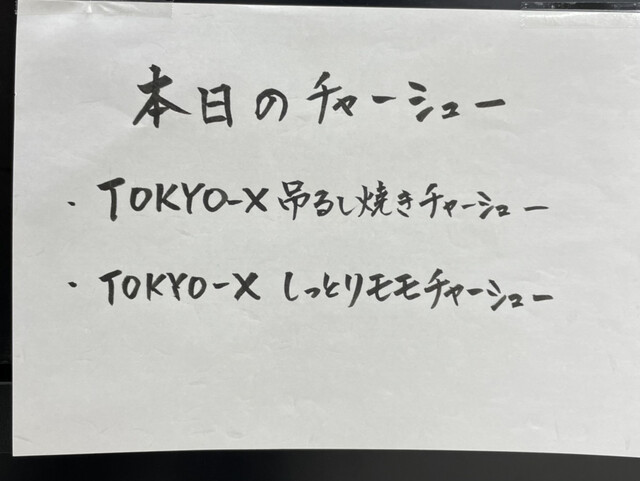 本日のチャーシュー
・TOKYO-X 吊るし焼きチャーシュー
・TOKYO-X しっとりモモチャーシュー